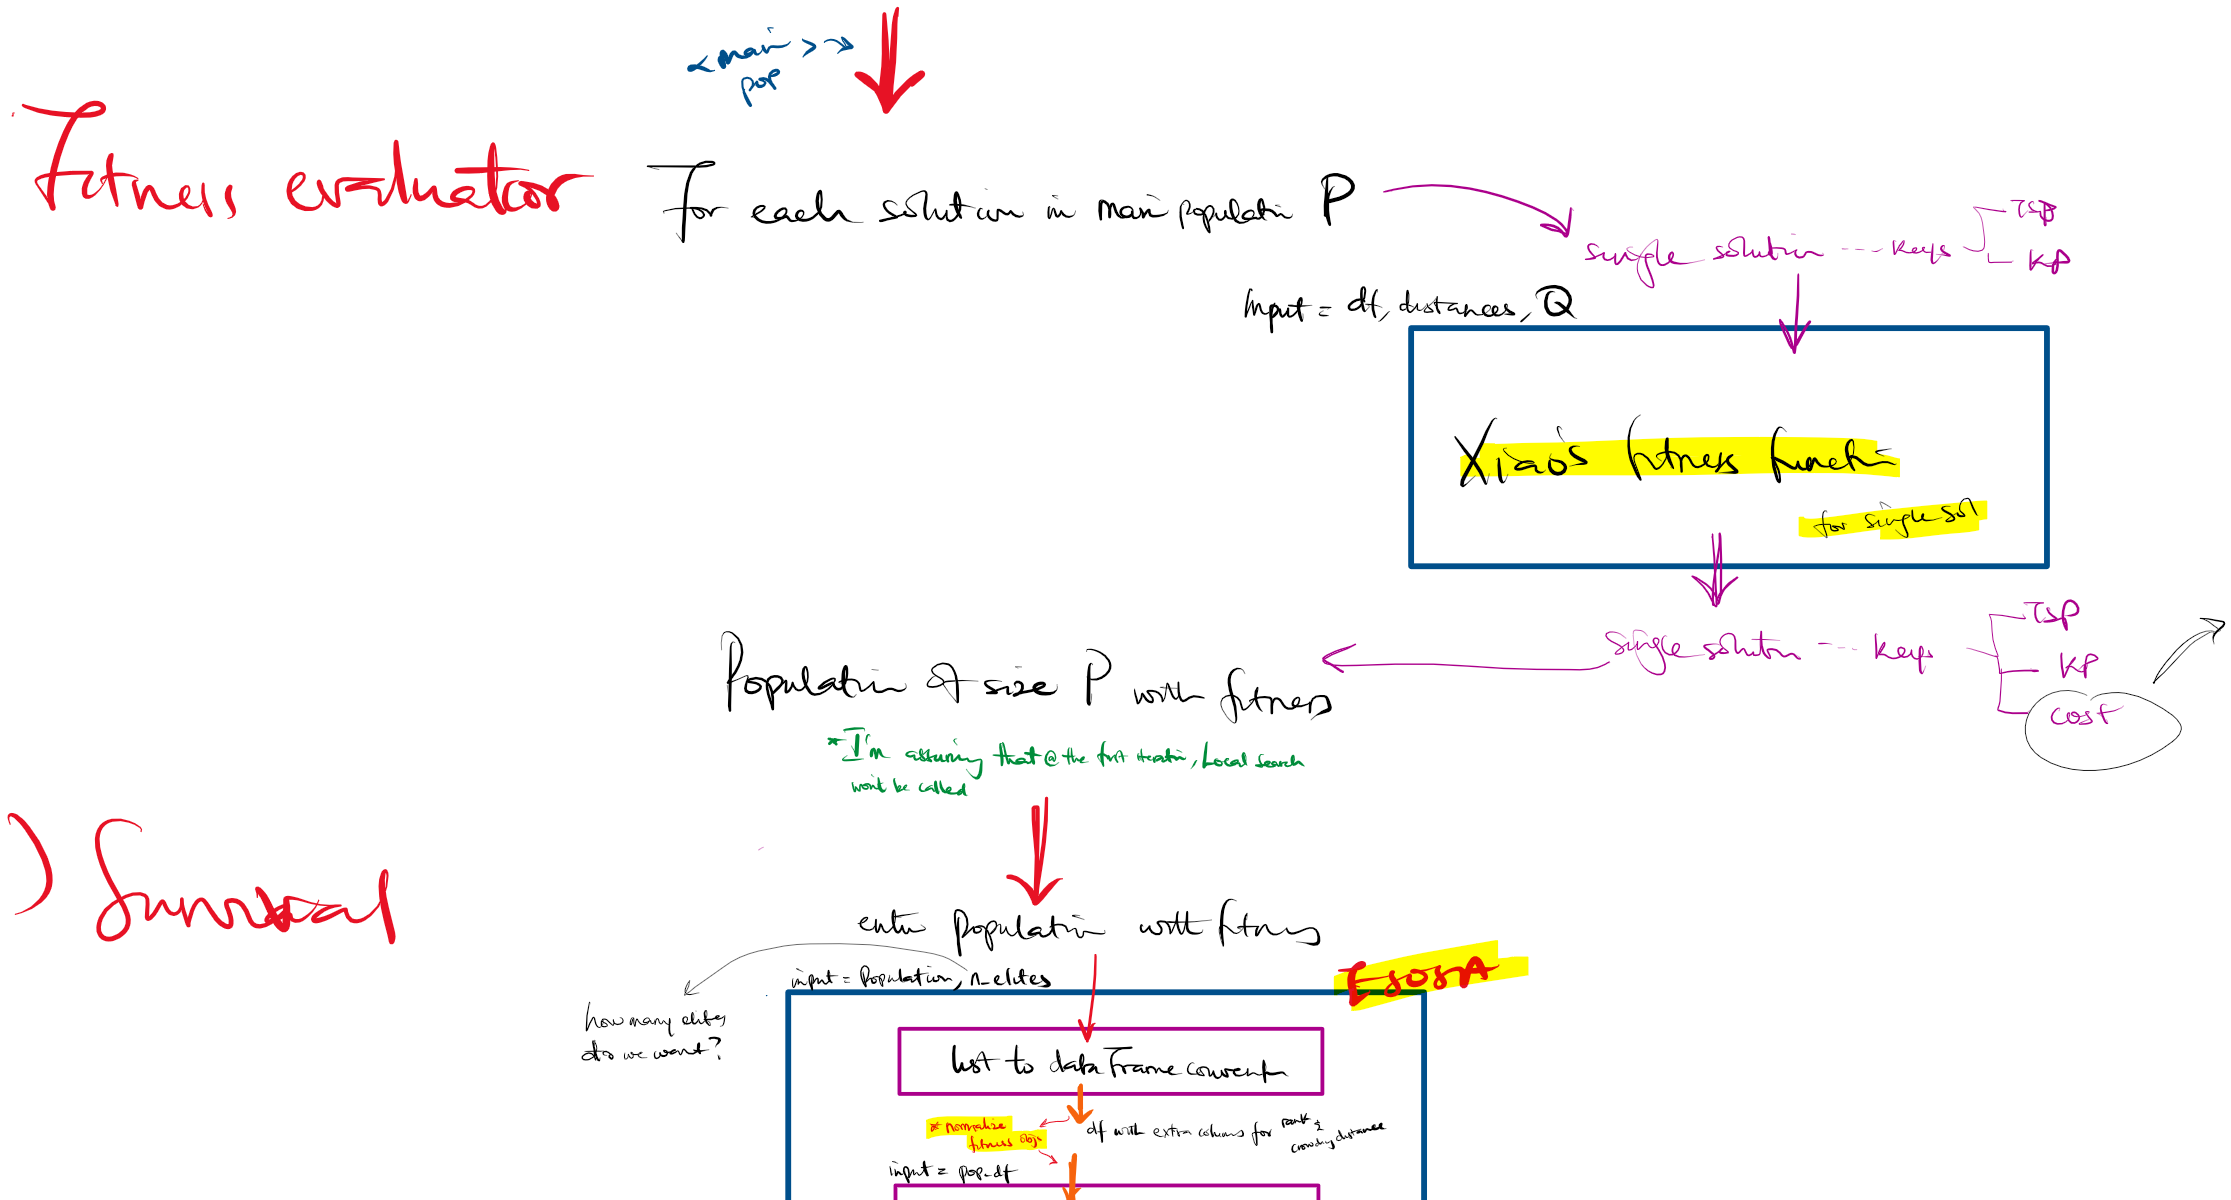 <main> →
pop
Fitness evaluator
For each solution in main population P
single solution --- keys
TSP
KP
Input = df, distances, Q
Xiao's fitness function
for single sol
single solution --- keys
TSP
KP
cost
Population of size P with fitness
*I'm assuming that @ the first iteration, Local search
won't be called
) Survival
enter population with fitness
input = Population, n_elites
ESOSA
how many elites
do we want?
list to dataFrame converter
* normalize
fitness objs
df with extra columns for rank &
crowding distance
input = pop_df